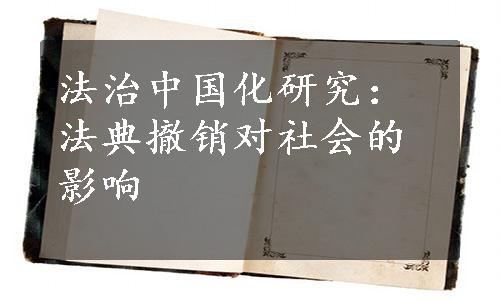 法治中国化研究：
法典撤销对社会的
影响